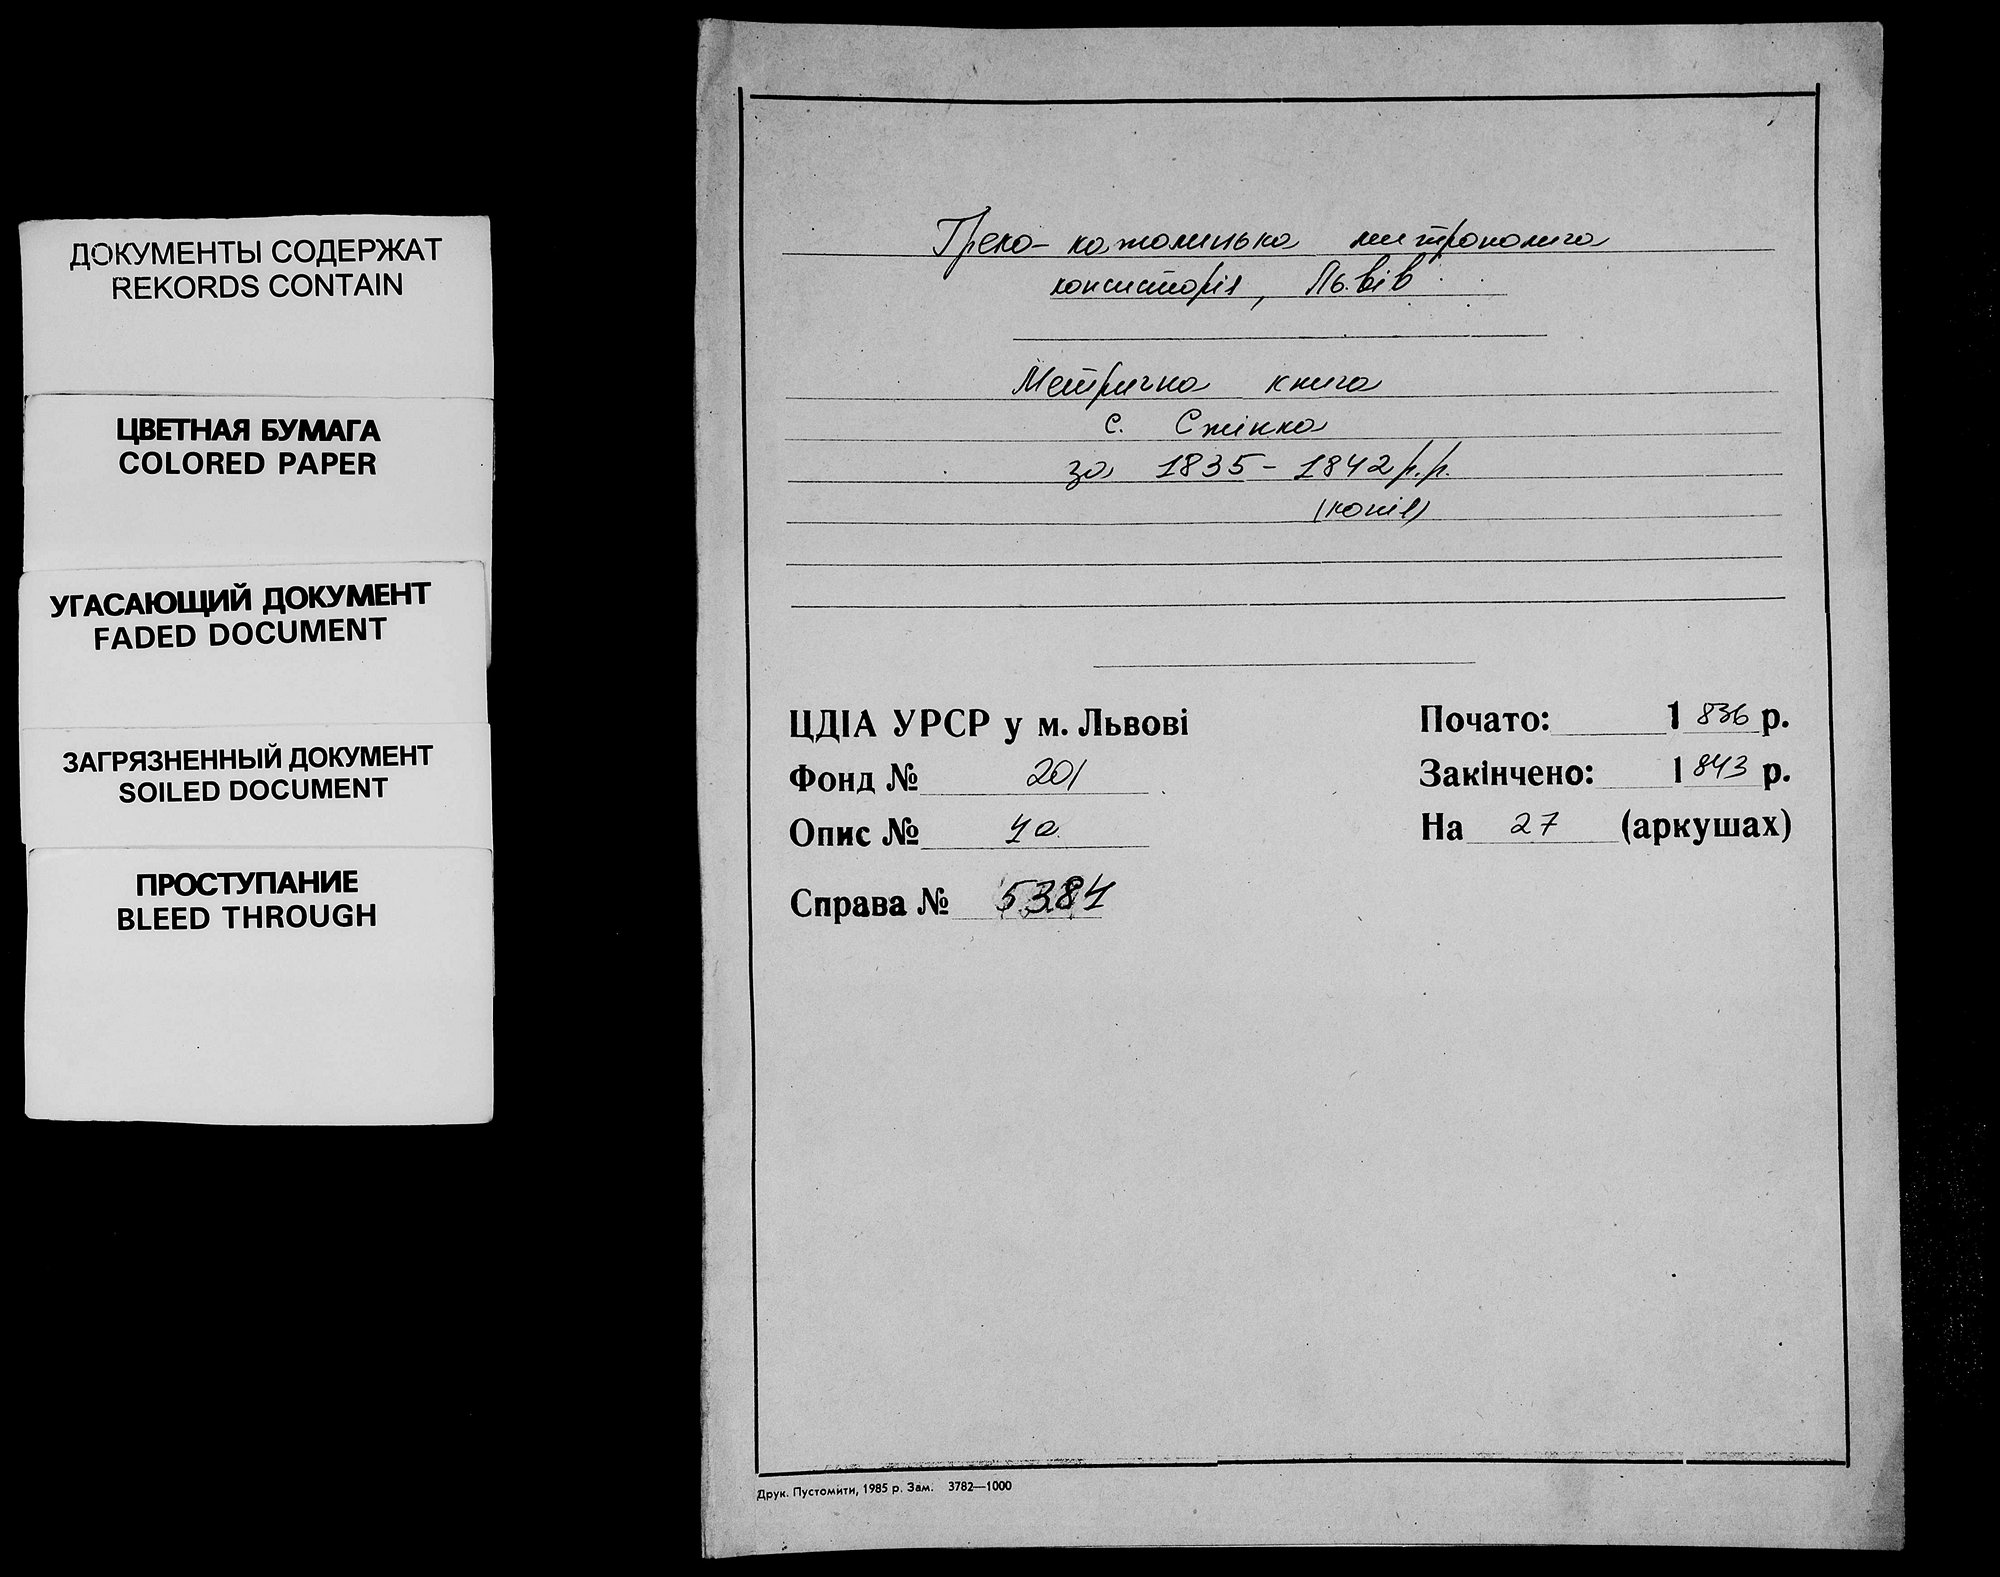 ДОКУМЕНТЫ СОДЕРЖАТ
REKORDS CONTAIN
ЦВЕТНАЯ БУМАГА
COLORED PAPER
УГАСАЮЩИЙ ДОКУМЕНТ
FADED DOCUMENT
ЗАГРЯЗНЕННЫЙ ДОКУМЕНТ
SOILED DOCUMENT
ПРОСТУПАНИЕ
BLEED THROUGH
Греко-католицька митрополича
консисторія, Львів
Метрична книга
с. Стінка
за 1835-1842 р.р.
(копія)
ЦДІА УРСР у м. Львові
Фонд № 201
Опис № 4а
Справа № 5384
Почато: 1836 р.
Закінчено: 1843 р.
На 27 (аркушах)
Друк. Пустомити, 1985 р. Зам. 3782—1000